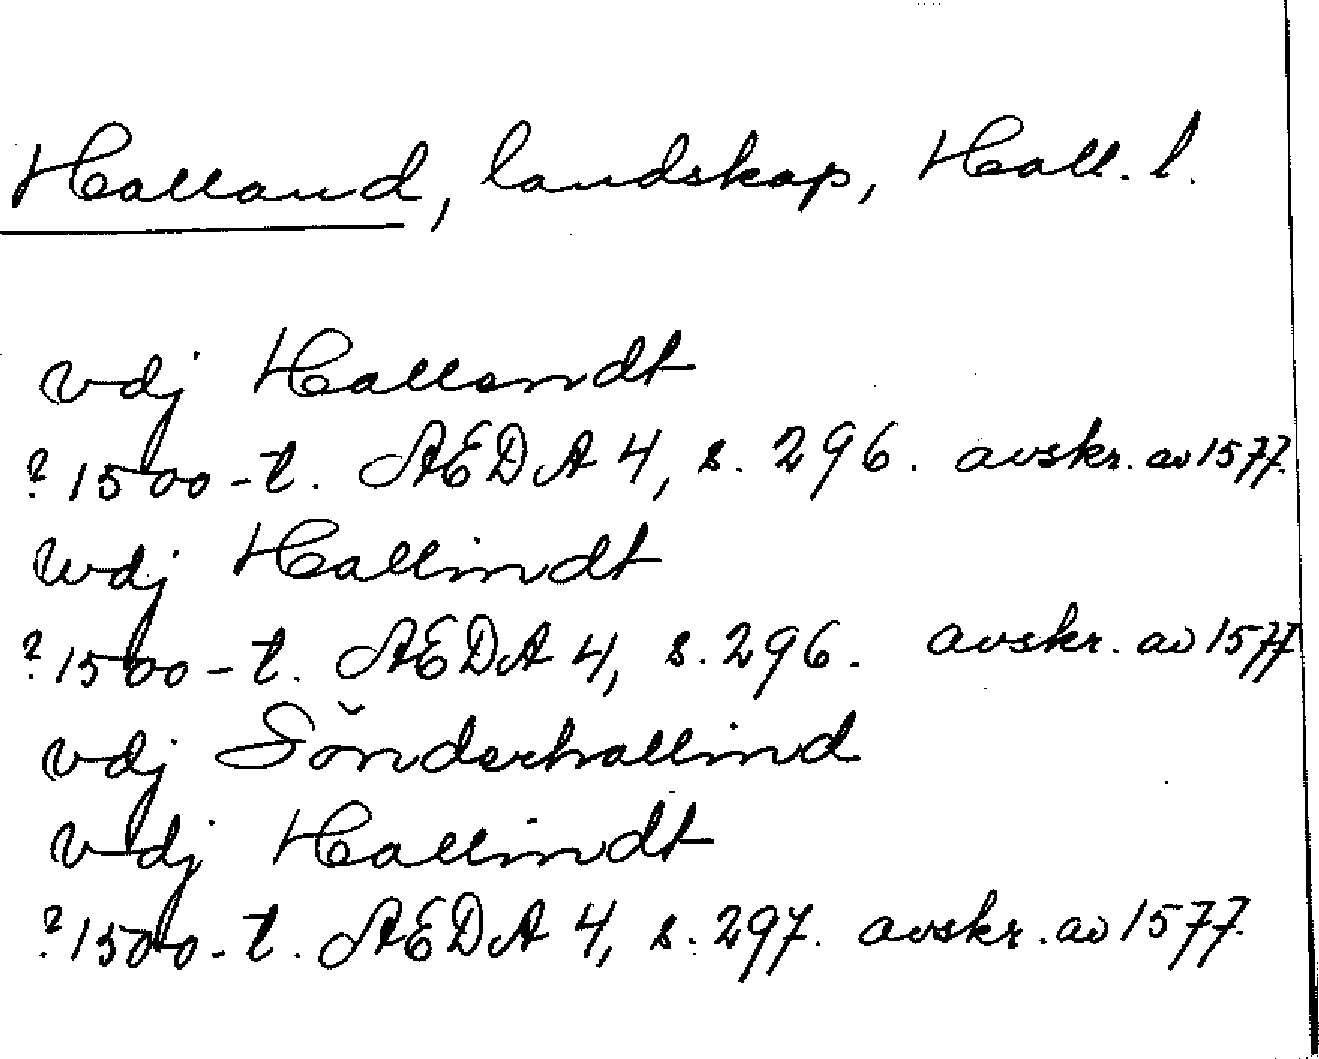 Halland, landskap, Hall. l.
vdj Hallandt
? 1500-t. AEDA 4, s. 296. avskr. av 1577.
wdj Hallindt
? 1500-t. AEDA 4, s. 296. avskr. av 1577
vdj Sŏnderhallind
vdj Hallindt
? 1500-t. AEDA 4, s. 297. avskr. av 1577.